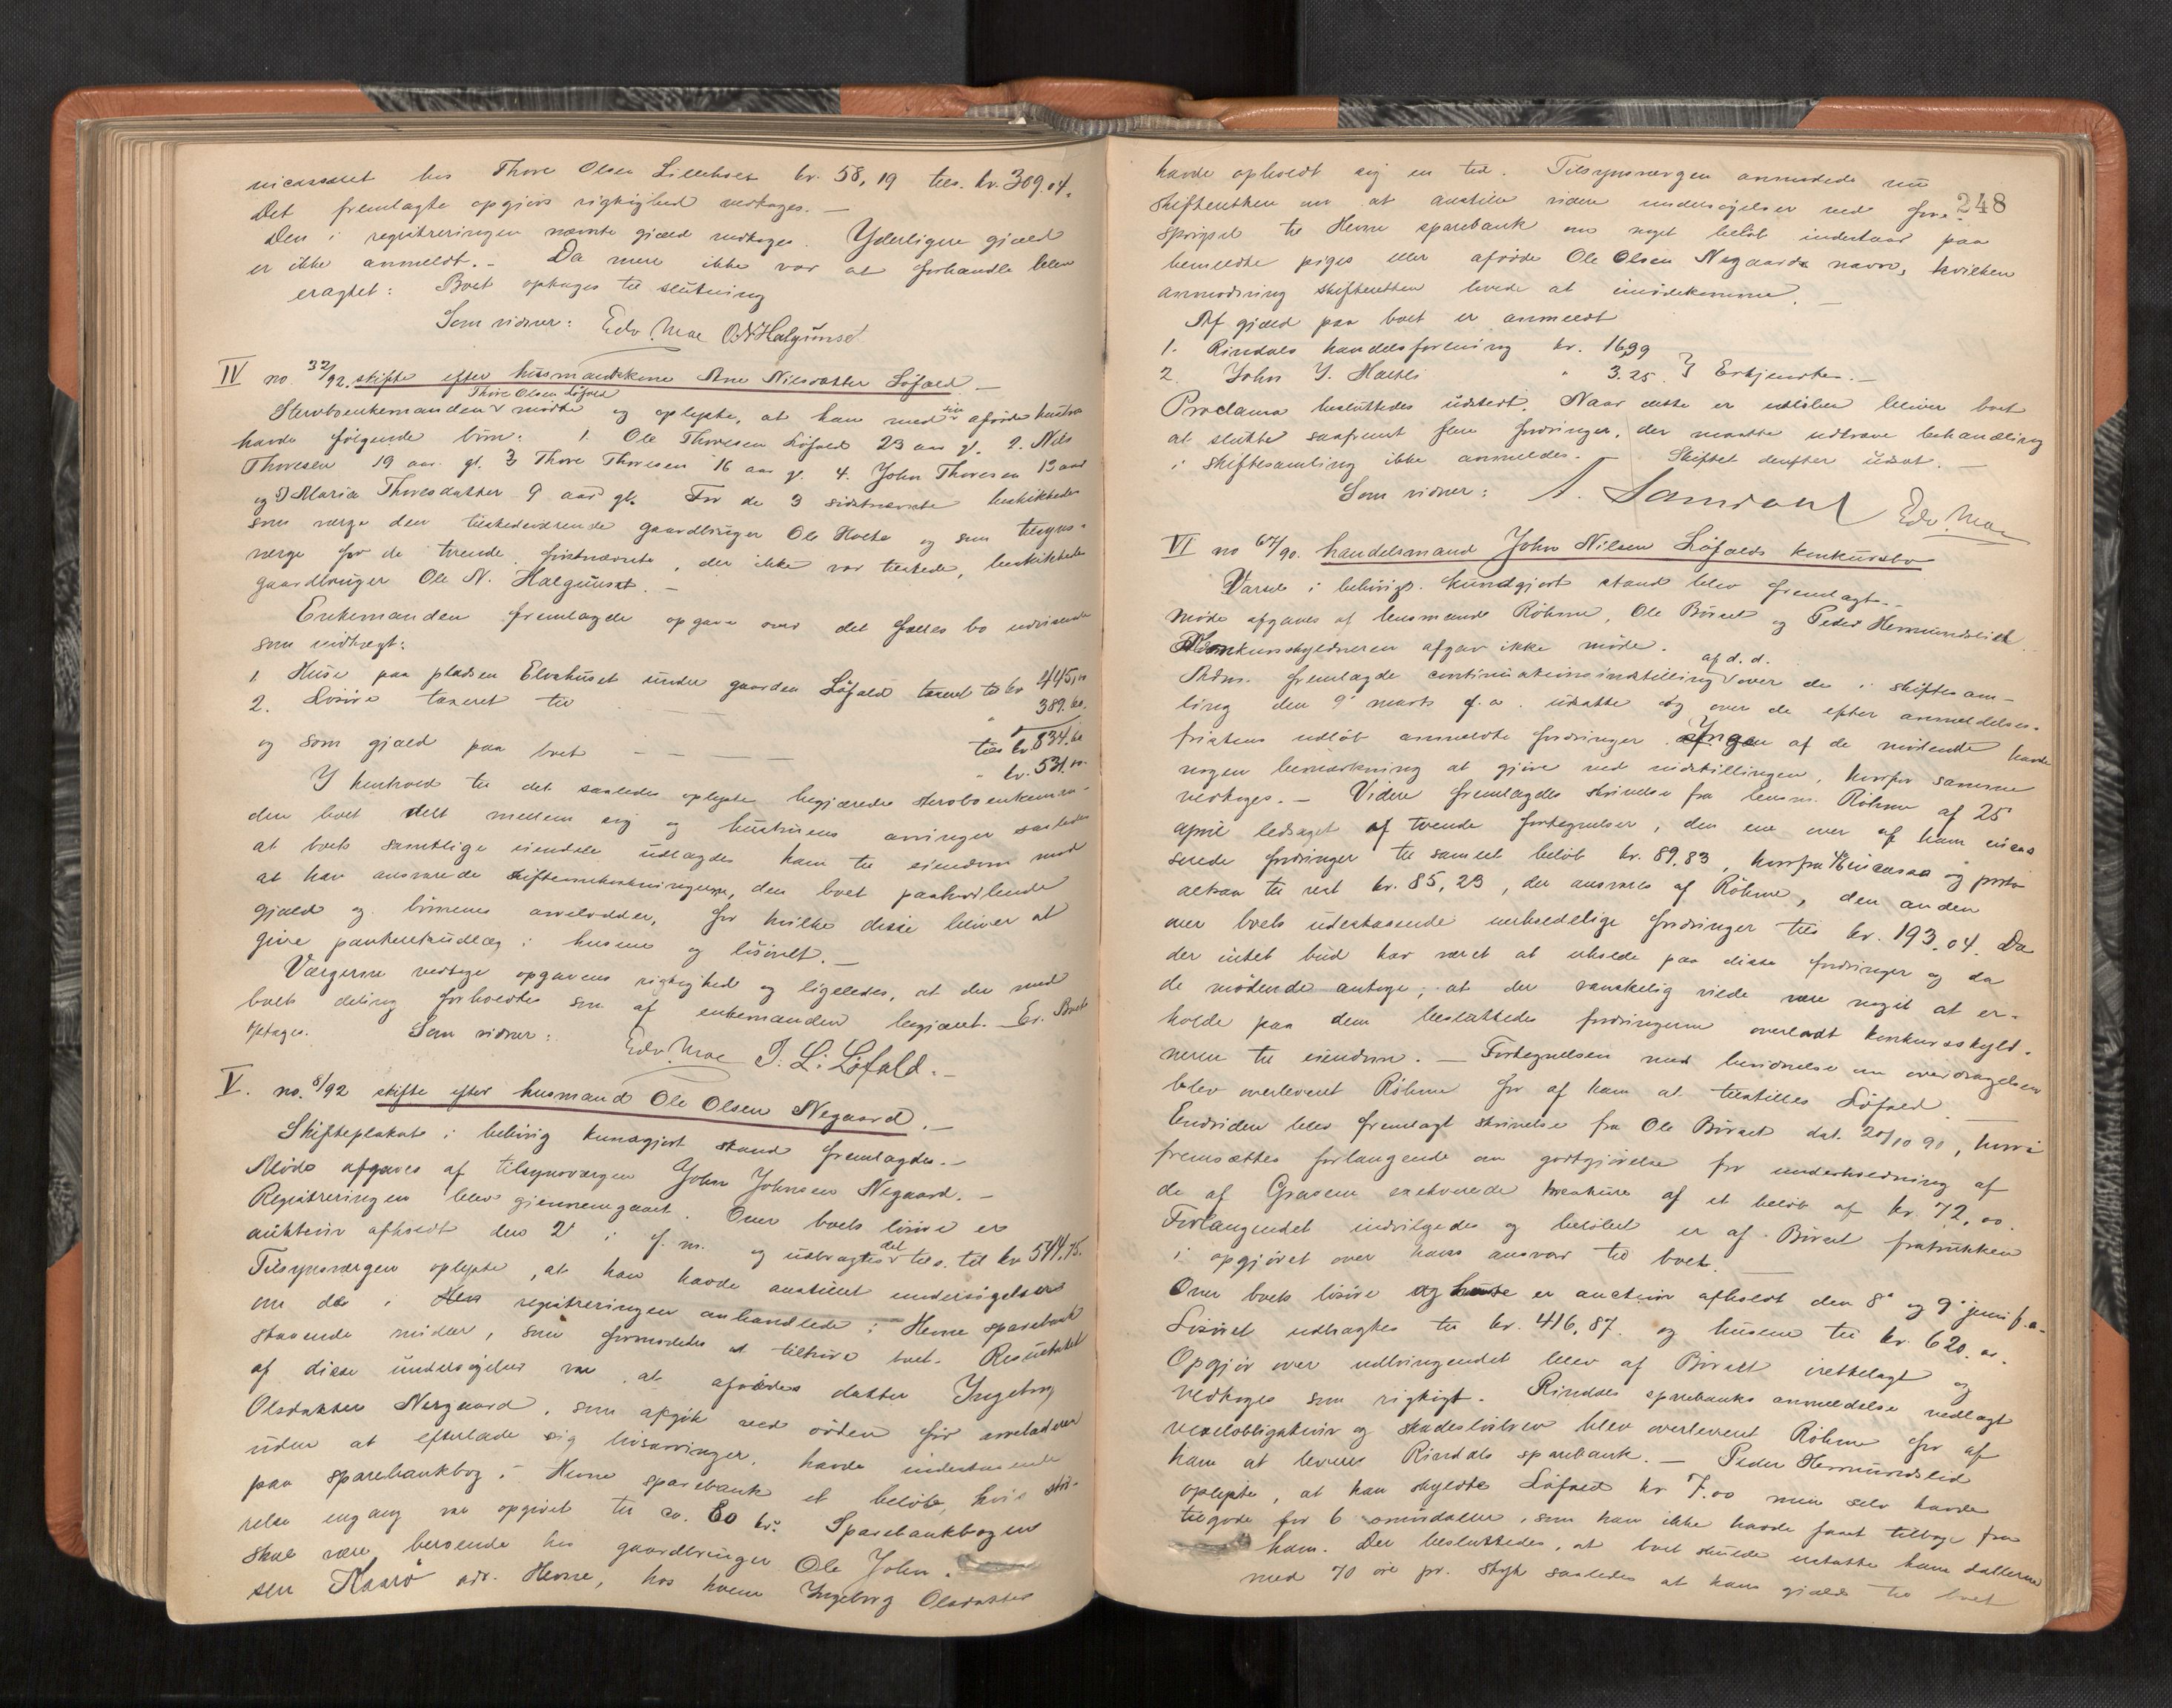 incasseret hos Thore Olsen Lilleholt kr. 58,19 tils. kr. 309.04.
Det fremlagte opgjørs rigtighed vedtoges. —
Den i registreringen nævnte gjæld vedtoges. Yderligere gjæld
er ikke anmeldt. – Da mere ikke var at forhandle blev
eragtet: Boet optages til slutning
Som vidner: Edv. Moe O N Halgunset
IV no. 32/92. skifte efter husmandskone Ane Nilsdatter Løfald —
Thore Olsen Løfald
Sterboenkemanden mødte og oplyste, at han med sin afdøde hustru
havde følgende børn: 1. Ole Thoresen Løfald 23 aar gl. 2. Nils
Thoresen 19 aar gl. 3 Thore Thoresen 16 aar gl. 4. John Thoresen 13 aar
og 5 Maria Thoresdatter 9 aar gl. For de 3 sidstnævnte beskikkedes
som værge den tilstedeværende gaardbruger Ole Holte og som tilsyns-
værge for de tvende førstnævnte, der ikke var tilstede, beskikkedes
gaardbruger Ole N. Halgunset. —
Enkemanden fremlagde opgave over det fælles bo udvisende
som indtægt:
1. Huse paa pladsen Elvehuset under gaarden Løfald taxeret til kr. 445,00
2. Løsøre taxeret til — " 389.60.
tils kr. 834.60
og som gjæld paa boet — — — " kr. 531.00.
I henhold til det saaledes oplyste begjærede sterboenkeman-
den boet delt mellem sig og hustruens arvinger saaledes
at boets samtlige eiendele udlagdes ham til eiendom mod
at han ansvarede skifteomkostningerne, den boet paahvilende
gjæld og børnenes arvelodder, for hvilke disse bliver at
give panteretsudlæg i husene og løsøret. —
Værgerne vedtoge opgavens rigtighed og ligeledes, at der med
boets deling forholdtes som af enkemanden begjæret. — Er. Boet
optages. Som vidner: Edv. Moe T. L. Løfald. —
V. no. 8/92 skifte efter husmand Ole Olsen Negaard. —
Skifteplakat i behørig kundgjort stand fremlagdes. —
Møde afgaves af tilsynsværgen John Johnsen Negaard. —
Registreringen blev gjennemgaaet. Over boets løsøre er
auktion afholdt den 2' i f. m. og udbragtes det tils. til kr 544.75.
Tilsynsværgen oplyste, at han havde anstillet undersøgelser
om de i registreringen omhandlede i Hevne sparebank
staaende midler, som formodedes at tilhøre boet. Resultatet
af disse undersøgelser var at afdødes datter Ingeborg
Olsdatter Nergaard, som afgik ved døden før arveladeren
uden at efterlade sig livsarvinger, havde indestaaende
paa sparebankbog i Hevne sparebank et beløb, hvis stør-
relse engang var opgivet til ca. 80 kr. Sparebankbogen
skal være beroende hos gaardbruger Ole John-
sen adr. Hevne, hos hvem Ingeborg Olsdatter
248
havde opholdt sig en tid. Tilsynsværgen anmodede nu
skifteretten om at anstille videre undersøgelser ved fore-
spørgsel til Hevne sparebank om noget beløb indestaar paa
bemeldte piges eller afdøde Ole Olsen Negaards navn, hvilken
anmodning skifteretten lovede at imødekomme. —
Af gjæld paa boet er anmeldt
1. Rindals handelsforening kr. 16,99
2. John J. Halsli " 3.25 } Erkjendtes. —
Proclama besluttedes udstedt. Naar dette er udløbet bliver boet
at slutte saafremt flere fordringer, der maatte udkræve behandling
i skiftesamling ikke anmeldes. — Skiftet derefter udsat. —
Som vidner: A. Landahl Edv. Moe
VI no 67/90. handelsmand John Nilsen Løfalds konkursbo
Varsel i behørigt kundgjort stand blev fremlagt. —
Møde afgaves af lensmand Röhme, Ole Børset og Peder Hermundslid.
Konkursskyldneren afgav ikke møde.
af d. d.
Adm. fremlagde continuationsindstilling over de i skiftesam-
ling den 9' marts f. a. udsatte og over de efter anmeldelses-
fristens udløb anmeldte fordringer. Ingen af de mødende havde
nogen bemærkning at gjøre ved indstillingen, hvorfor samme
vedtoges. — Videre fremlagdes skrivelse fra lensm. Röhme af 25
april ledsaget af tvende fortegnelser, den ene over af ham incas
serede fordringer til samlet beløb kr. 89,83, hvorfra incasso og porto
altsaa til rest kr. 85,23, der ansvares af Röhme, den anden
over boets udestaaende uerholdelige fordringer tils kr. 193.04. Da
der intet bud har været at erholde paa disse fordringer og da
de mødende antoge, at der vanskelig vilde være noget at er-
holde paa dem besluttedes fordringerne overladt konkursskyld-
neren til eiendom. — Fortegnelsen med bevidnelse om overdragelsen
blev overleveret Röhme for af ham at tilstilles Løfald. —
Endvidere blev fremlagt skrivelse fra Ole Børset dat. 20/10 90, hvori
fremsættes forlangende om godtgjørelse for underholdning af
de af Grasem exekverede kreature af et beløb af kr. 72,00.
Forlangendet indvilgedes og beløbet er af Børset fratrukken
i opgjøret over hans ansvar til boet. —
Over boets løsøre og huse er auction afholdt den 8' og 9' juni f. a.
Løsøret udbragtes til kr. 416,87. og husene til kr. 620.00.
Opgjør over udbringendet blev af Børset irettelagt og
vedtoges som rigtigt. Rindals sparebanks anmeldelse vedlagt
vexelobligation og skadesløsbrev blev overleveret Röhme for af
ham at leveres Rindals sparebank. — Peder Hermundslid
oplyste, at han skyldte Løfald kr 7.00 men selv havde
tilgode for 6 omsndaller, som han ikke havde faaet tilbage fra
ham. Der besluttedes, at boet skulde erstatte ham dallerne
med 70 øre pr. styk saaledes at hans gjæld til boet